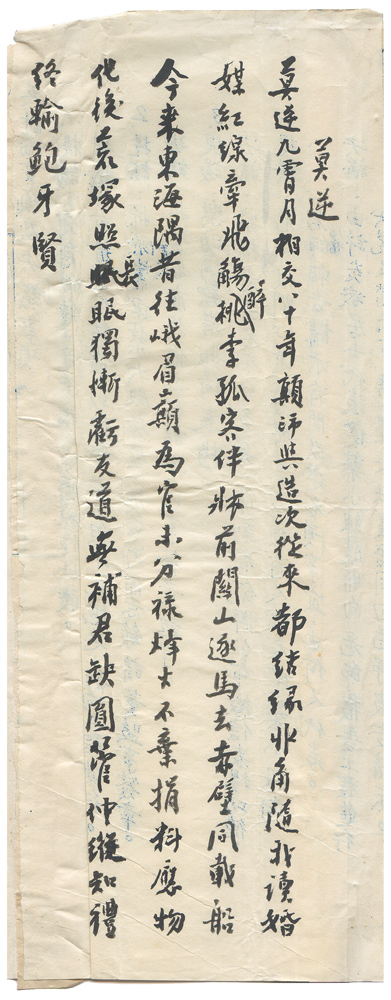 莫逆
莫逆九霄月相交八十年顛沛與造次從來都結緣丱角隨我讀婚
媒紅線牽飛觴醉桃李孤客伴牀前關山逐馬去赤壁同載船
今來東海隅昔往峨眉巔為官未分祿烽火不棄捐料應物
化後荒塚照長眠獨慚虧友道無補君缺圓管仲縱知禮
終輸鮑牙賢